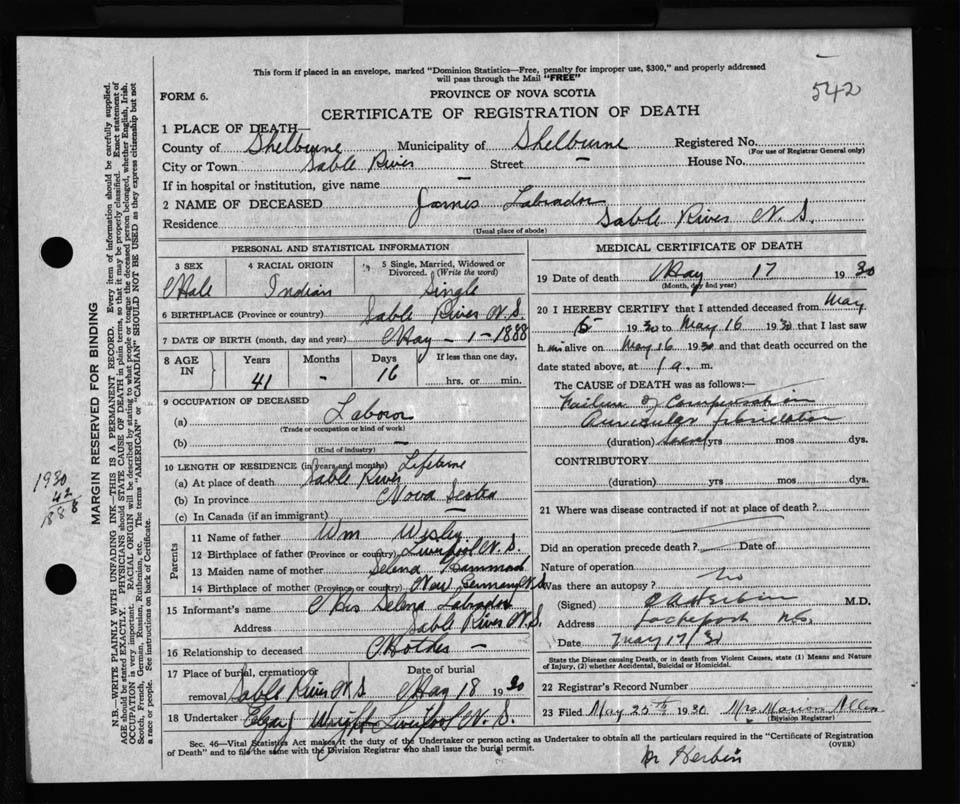 This form if placed in an envelope, marked "Dominion Statistics—Free, penalty for improper use, $300," and properly addressed
will pass through the Mail "FREE"
542
FORM 6.
PROVINCE OF NOVA SCOTIA
CERTIFICATE OF REGISTRATION OF DEATH
1 PLACE OF DEATH—
County of Shelburne Municipality of Shelburne Registered No.
(For use of Registrar General only)
City or Town Sable River Street — House No.
If in hospital or institution, give name —
2 NAME OF DECEASED James Labrador
Residence Sable River N.S.
(Usual place of abode)
PERSONAL AND STATISTICAL INFORMATION
3 SEX 4 RACIAL ORIGIN 5 Single, Married, Widowed or Divorced. (Write the word)
Male Indian Single
6 BIRTHPLACE (Province or country) Sable River N.S.
7 DATE OF BIRTH (month, day and year) May - 1 - 1888
8 AGE IN Years Months Days If less than one day,
41 - 16 hrs. or min.
9 OCCUPATION OF DECEASED
(a) Labour
(Trade or occupation or kind of work)
(b) —
(Kind of industry)
10 LENGTH OF RESIDENCE (in years and months) Lifetime
(a) At place of death Sable River
(b) In province Nova Scotia
(c) In Canada (if an immigrant) —
Parents
11 Name of father Wm Wesley
12 Birthplace of father (Province or country) Liverpool N.S.
13 Maiden name of mother Selena
14 Birthplace of mother (Province or country) New Germany N.S.
15 Informant's name Mrs Selena Labrador
Address Sable River N.S.
16 Relationship to deceased Mother —
17 Place of burial, cremation or removal Date of burial
Sable River N.S. May 18 1930
18 Undertaker Wright Liverpool N.S.
MEDICAL CERTIFICATE OF DEATH
19 Date of death May 17 1930
(Month, day and year)
20 I HEREBY CERTIFY that I attended deceased from May
5 1930 to May 16 1930 that I last saw
him alive on May 16 1930 and that death occurred on the
date stated above, at 1 a. m.
The CAUSE of DEATH was as follows:—
Failure of Compensation
Auricular fibrillation
(duration) yrs mos dys.
CONTRIBUTORY
(duration) yrs mos dys.
21 Where was disease contracted if not at place of death?
Did an operation precede death? Date of
Nature of operation
Was there an autopsy? no
(Signed) Herbin M.D.
Address Lockeport N.S.
Date May 17/30
State the Disease causing Death, or in death from Violent Causes, state (1) Means and Nature
of Injury, (2) whether Accidental, Suicidal or Homicidal.
22 Registrar's Record Number
23 Filed May 25th 1930 Mrs Marion Allen
(Division Registrar)
Sec. 46—Vital Statistics Act makes it the duty of the Undertaker or person acting as Undertaker to obtain all the particulars required in the "Certificate of Registration
of Death" and to file the same with the Division Registrar who shall issue the burial permit. (OVER)
Dr Herbin
MARGIN RESERVED FOR BINDING
N.B.—WRITE PLAINLY WITH UNFADING INK—THIS IS A PERMANENT RECORD. Every item of information should be carefully supplied.
AGE should be stated EXACTLY. PHYSICIANS should STATE CAUSE OF DEATH in plain terms, so that it may be properly classified. Exact statement of
OCCUPATION is very important. RACIAL ORIGIN will be described by stating to what people or tongue the deceased person belonged, whether English, Irish,
Scotch, French, German, Russian, Ruthenian, etc. The terms "AMERICAN" or "CANADIAN" SHOULD NOT BE USED as they express citizenship but not
a race or people. See instructions on back of Certificate.
1930
42
1888